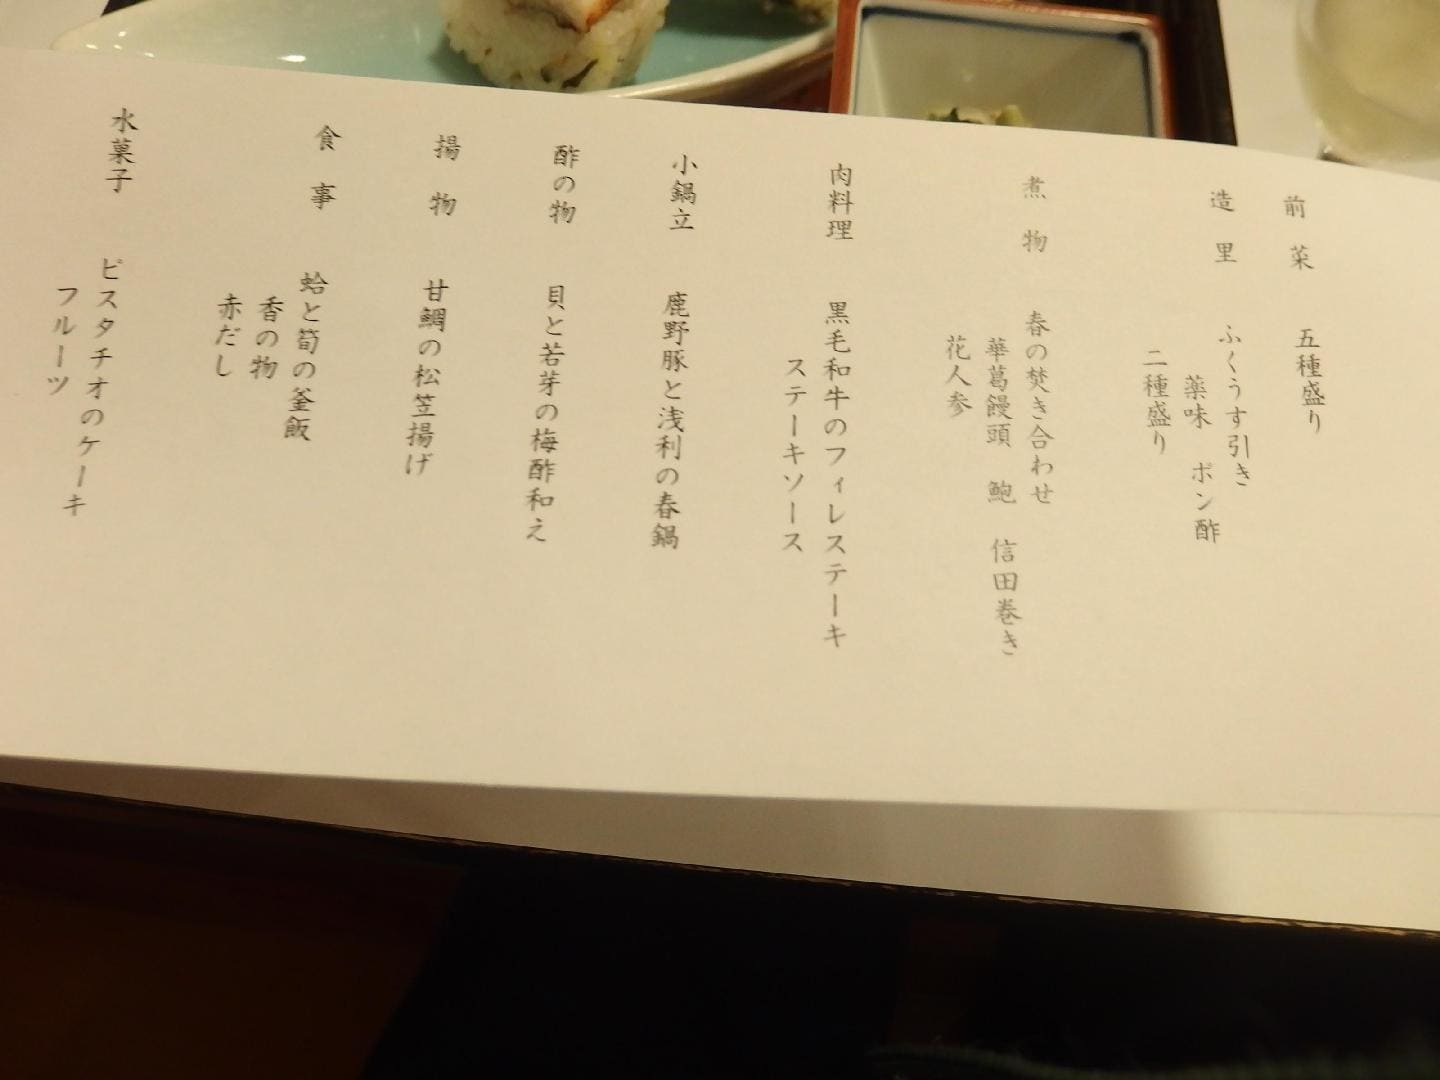 前菜　五種盛り
造里　ふくうす引き
薬味　ポン酢
二種盛り
煮物　春の焚き合わせ
華葛饅頭　鮑　信田巻き
花人参
肉料理　黒毛和牛のフィレステーキ
ステーキソース
小鍋立　鹿野豚と浅利の春鍋
酢の物　貝と若芽の梅酢和え
揚物　甘鯛の松笠揚げ
食事　蛤と筍の釜飯
香の物
赤だし
水菓子　ピスタチオのケーキ
フルーツ